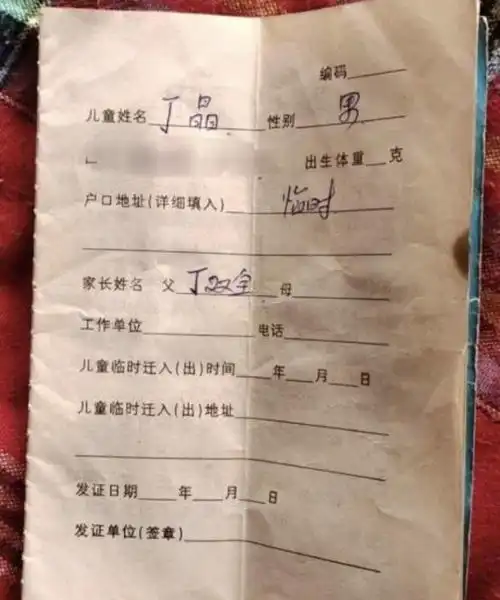 编码
儿童姓名 丁晶 性别 男
出生体重 克
户口地址(详细填入) 临时
家长姓名 父 丁双全 母
工作单位 电话
儿童临时迁入(出)时间 年 月 日
儿童临时迁入(出)地址
发证日期 年 月 日
发证单位(签章)